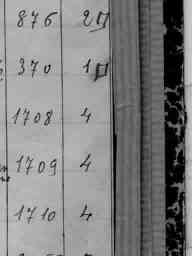 876 2
370 1
1708 4
1709 4
1710 4